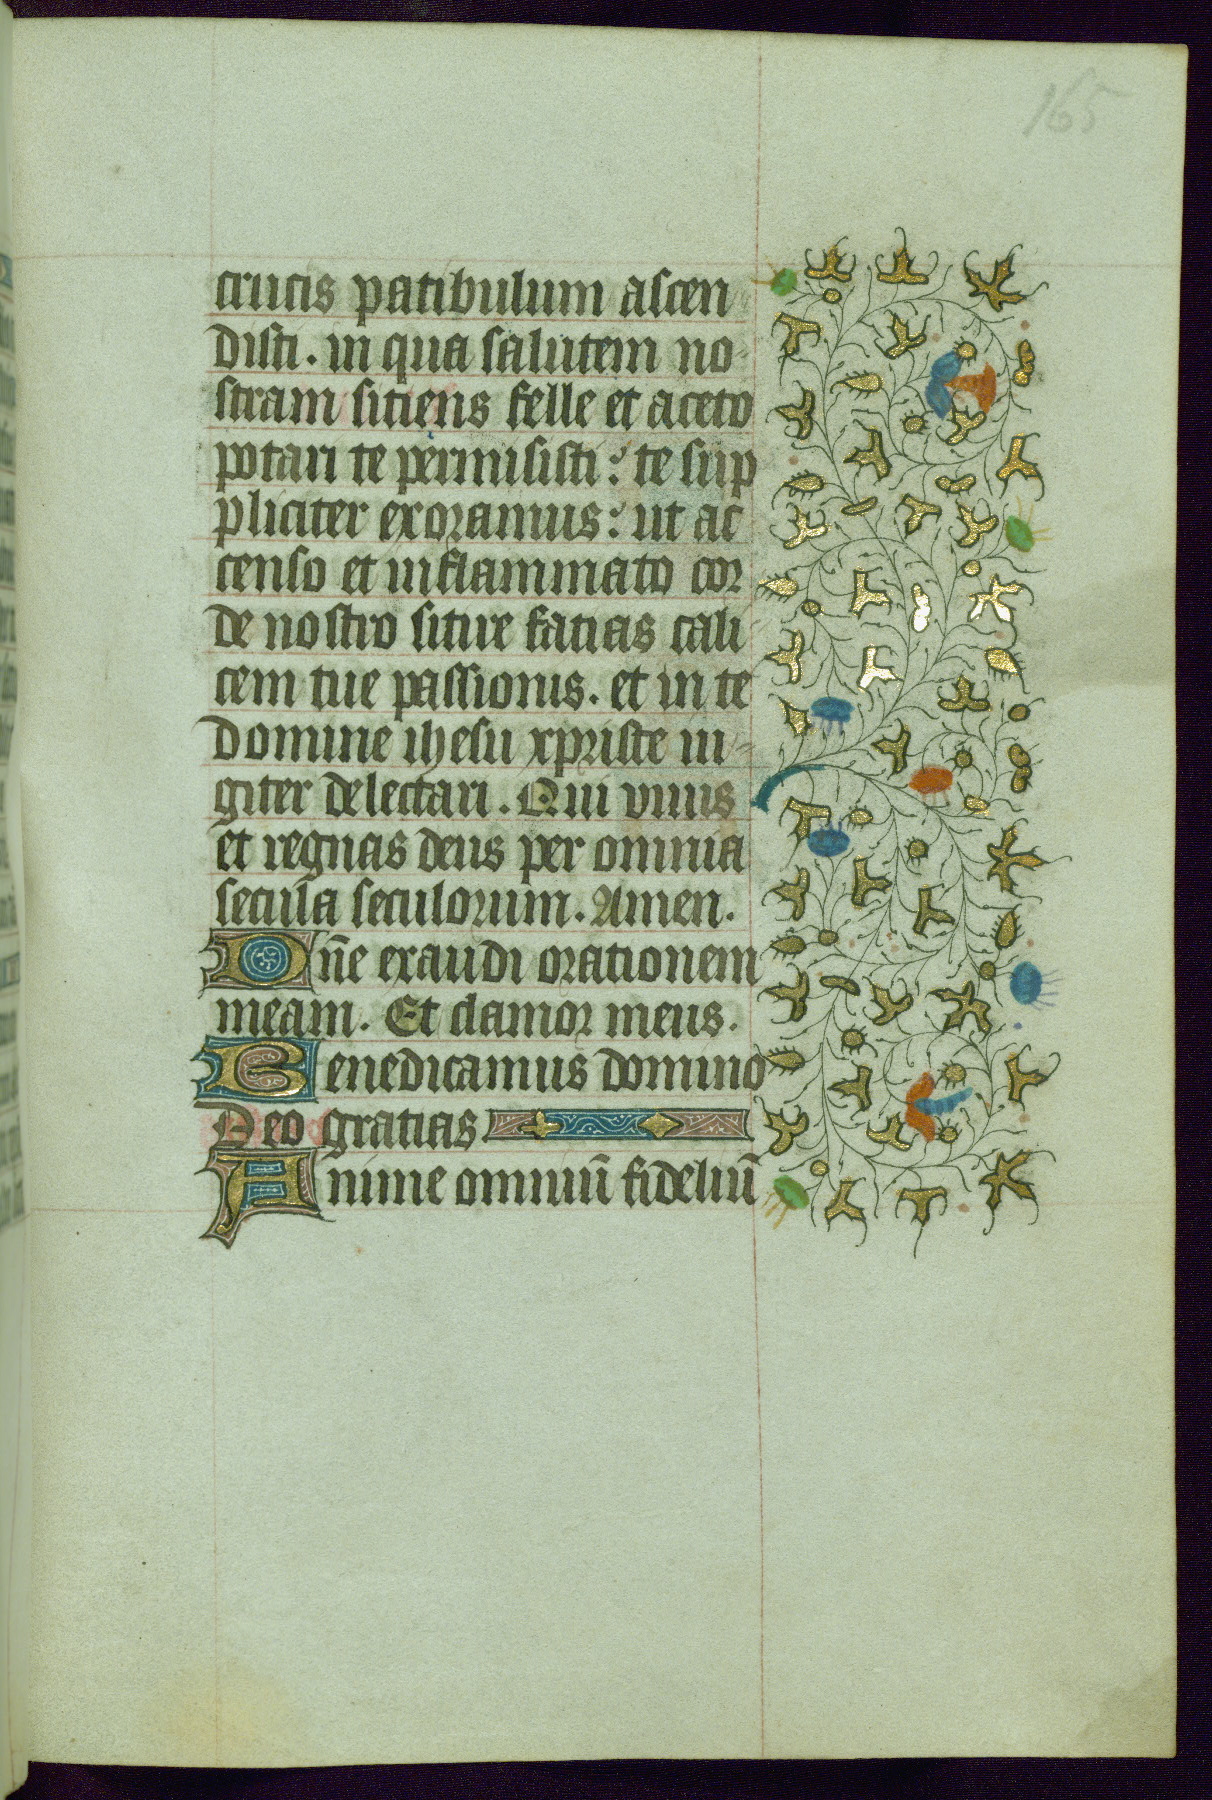 165
crucis patibulum ascen
disti. in qua salutem no-
stram sitiens felle et aceto
potari te permisisti: te sup
pliciter exoramus: ut ac
censo et inflammato cor
de nostro sitire fatias cali
cem tue passionis. et in te
domine ihesu xpriste iu-
giter delectari. Qui viuis
et regnas deus per omnia
secula seculorum. Amen.
Dn̄e exaudi orationem
meam. Et clamor meus.
Benedicamus domino
Deo gratias
Anime omniū fideliū